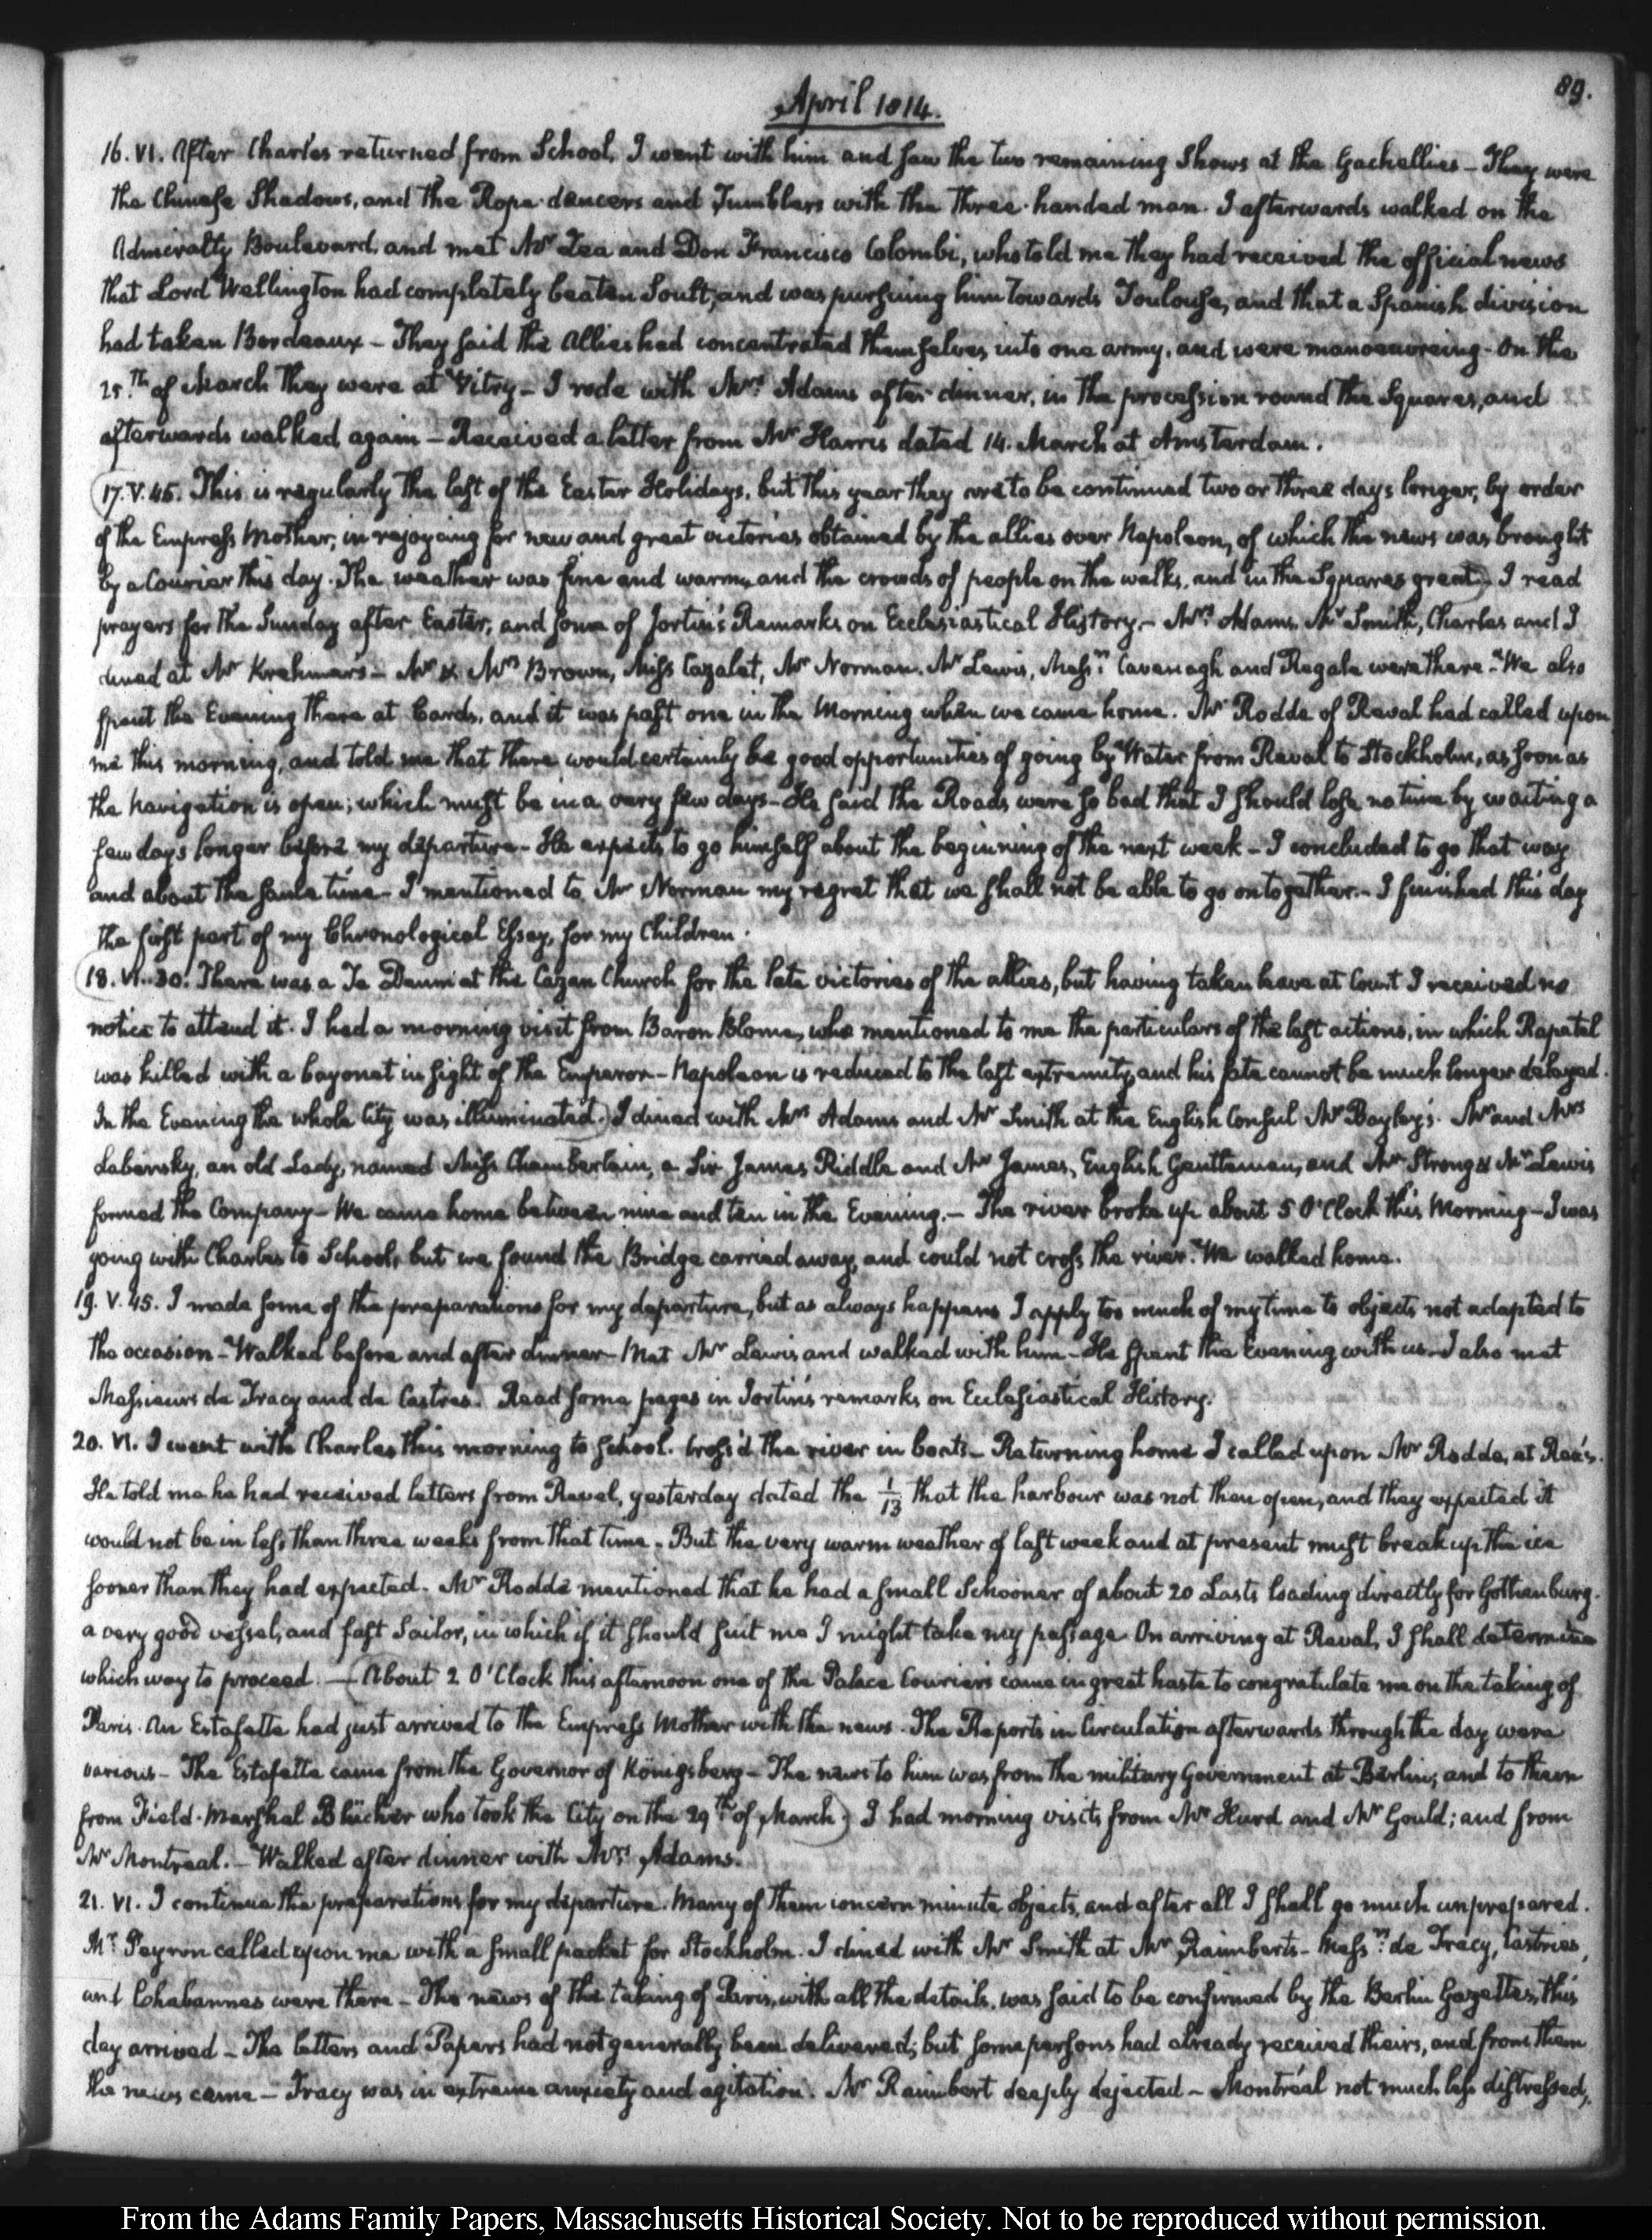 89.
April 1814.
16. VI. After Charles returned from School, I went with him and saw the two remaining Shows at the Gachellies — They were
the Chinese Shadows, and the Rope-dancers and Tumblers with the three-handed man. I afterwards walked on the
Admiralty Boulevard, and met Mr Zea and Don Francisco Colombi, who told me they had received the official news
that Lord Wellington had completely beaten Soult, and was pursuing him towards Toulouse, and that a Spanish division
had taken Bordeaux — They said the Allies had concentrated themselves into one army, and were manoeuvreing — On the
25th of March they were at Vitry — I rode with Mrs Adams after dinner, in the procession round the Squares, and
afterwards walked again — Received a letter from Mr Harris dated 14. March at Amsterdam.
17. V. 45. This is regularly the last of the Easter Holidays, but this year they are to be continued two or three days longer, by order
of the Empress Mother, in rejoycing for new and great victories obtained by the allies over Napoleon, of which the news was brought
by a Courier this day. The weather was fine and warm, and the crowds of people on the walks, and in the Squares great) I read
prayers for the Sunday after Easter, and some of Jortin's Remarks on Ecclesiastical History. — Mrs Adams, Mr Smith, Charles and I
dined at Mr Krehmer's — Mr & Mrs Brown, Miss Cazalet, Mr Norman, Mr Lewis, Messrs Cavenagh and Regala were there — We also
spent the Evening there at Cards, and it was past one in the Morning when we came home. Mr Rodde of Reval had called upon
me this morning, and told me that there would certainly be good opportunities of going by Water from Reval to Stockholm, as soon as
the navigation is open; which must be in a very few days — He said the Roads were so bad that I should lose no time by waiting a
few days longer before my departure — He expects to go himself about the beginning of the next week — I concluded to go that way
and about the same time — I mentioned to Mr Norman my regret that we shall not be able to go on together. — I finished this day
the first part of my Chronological Essay, for my Children.
18. VI. 30. There was a Te Deum at the Cazan Church for the late victories of the allies, but having taken leave at Court I received no
notice to attend it. I had a morning visit from Baron Blome, who mentioned to me the particulars of the last actions, in which Rapatel
was killed with a bayonet in sight of the Emperor — Napoleon is reduced to the last extremity, and his fate cannot be much longer delayed.
In the Evening the whole City was illuminated.) I dined with Mrs Adams and Mr Smith at the English Consul Mr Bayley's. Mr and Mrs
Labensky, an old Lady, named Miss Chamberlain, a Sir James Riddle and Mr James, English Gentlemen, and Mr Strong & Mr Lewis
formed the Company — We came home between nine and ten in the Evening. — The river broke up about 5 O'Clock this Morning — I was
going with Charles to School, but we found the Bridge carried away, and could not cross the river. We walked home.
19. V. 45. I made some of the preparations for my departure, but as always happens I apply too much of my time to objects not adapted to
the occasion — Walked before and after dinner — Met Mr Lewis and walked with him — He spent the Evening with us — I also met
Messieurs de Tracy and de Castres. Read some pages in Jortin's remarks on Ecclesiastical History.
20. VI. I went with Charles this morning to School. Cross'd the river in boats — Returning home I called upon Mr Rodde, at
He told me he had received letters from Reval, yesterday dated the 1/13 that the harbour was not then open, and they expected it
would not be in less than three weeks from that time. But the very warm weather of last week and at present must break up the ice
sooner than they had expected. Mr Rodde mentioned that he had a small Schooner of about 20 Lasts loading directly for Gothenburg.
a very good vessel, and fast Sailor, in which if it should suit me I might take my passage On arriving at Reval, I shall determine
which way to proceed. — (About 2 O'Clock this afternoon one of the Palace Couriers came in great haste to congratulate me on the taking of
Paris. An Estafette had just arrived to the Empress Mother with the news. The Reports in Circulation afterwards through the day were
various — The Estafette came from the Governor of Königsberg — The news to him was from the military Government at Berlin; and to them
from Field-Marshal Blücher who took the City on the 29th of March.) I had morning visits from Mr Hurd and Mr Gould; and from
Mr Montreal. — Walked after dinner with Mrs Adams.
21. VI. I continue the preparations for my departure. Many of them concern minute objects, and after all I shall go much unprepared.
Mr Peyron called upon me with a small packet for Stockholm. I dined with Mr Smith at Mr Raimbert's — Messrs de Tracy, Castries,
and Chabannes were there — The news of the taking of Paris, with all the details, was said to be confirmed by the Berlin Gazettes, this
day arrived — The letters and Papers had not generally been delivered; but some persons had already received theirs, and from them
the news came — Tracy was in extreme anxiety and agitation. Mr Raimbert deeply dejected — Montréal not much less distressed,
From the Adams Family Papers, Massachusetts Historical Society. Not to be reproduced without permission.